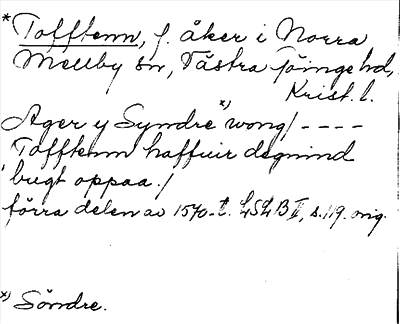 * Tofftenn, f. åker i Norra
Mellby sn, Västra Göinge hd,
Krist. l.
Ager y Syndre x) wong/ - - - -
Tofftenn haffuir degnind
brugt oppaa./
förra delen av 1570-t. LSLB II, s. 119. orig.
x) Söndre.